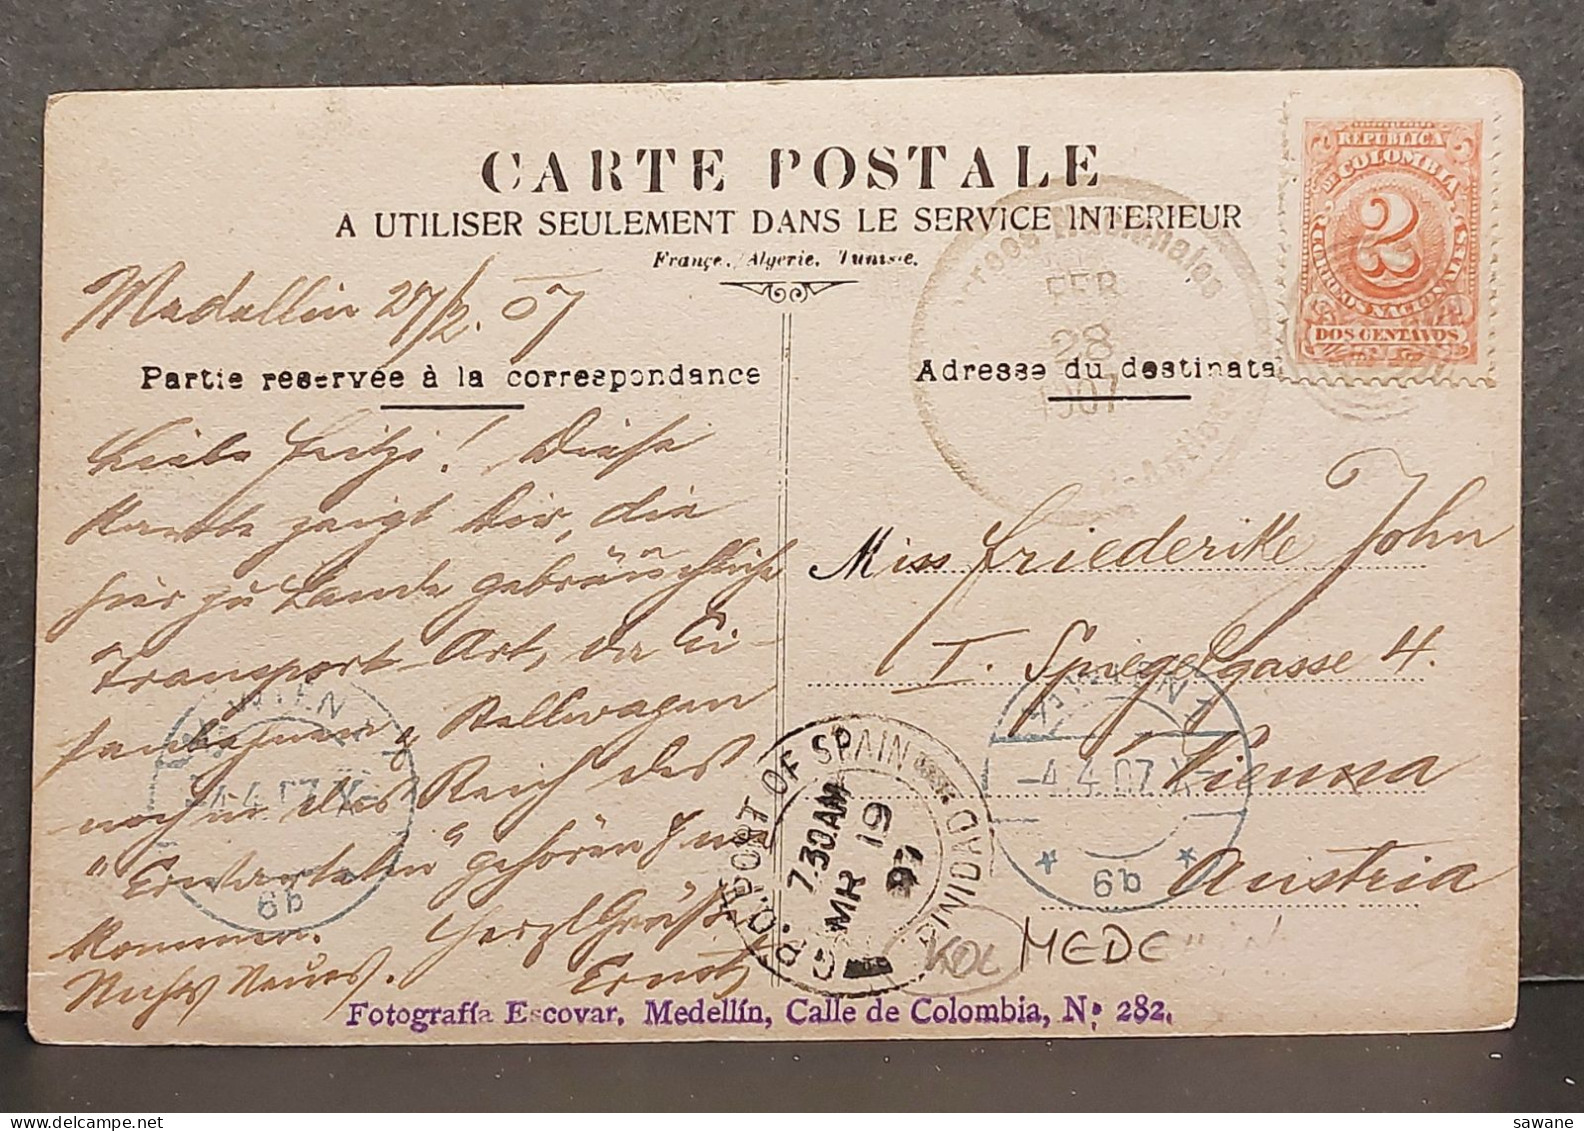 CARTE POSTALE
A UTILISER SEULEMENT DANS LE SERVICE INTERIEUR
France, Algerie, Tunisie.
REPUBLICA
DE COLOMBIA
2
CORREOS NACIONALES
DOS CENTAVOS
Correos Nacionales
FEB
28
1907
Medellin 27/2. 07
Partie reservée à la correspondance
Adresse du destinata
Liebe Fritzi! Diese
Karte zeigt Dir, die
hier zu Lande gebräuchliche
Transport-Art, da Ei-
senbahnen, Stellwagen
noch in das Reich des
"Erwarteten" gehören
kommen. Herzl Grüße
Nichts Neues. Ernst
Miss Friederike John
I. Spiegelgasse 4.
Vienna
Austria
WIEN 1
-4.4.07.X-
6b
WIEN 1
-4.4.07.X-
6b
G.P.O. PORT OF SPAIN TRINIDAD
7.30AM
MR 19
07
KOL
MEDELLIN
Fotografía Escovar, Medellín, Calle de Colombia, Nº 282.
sawane